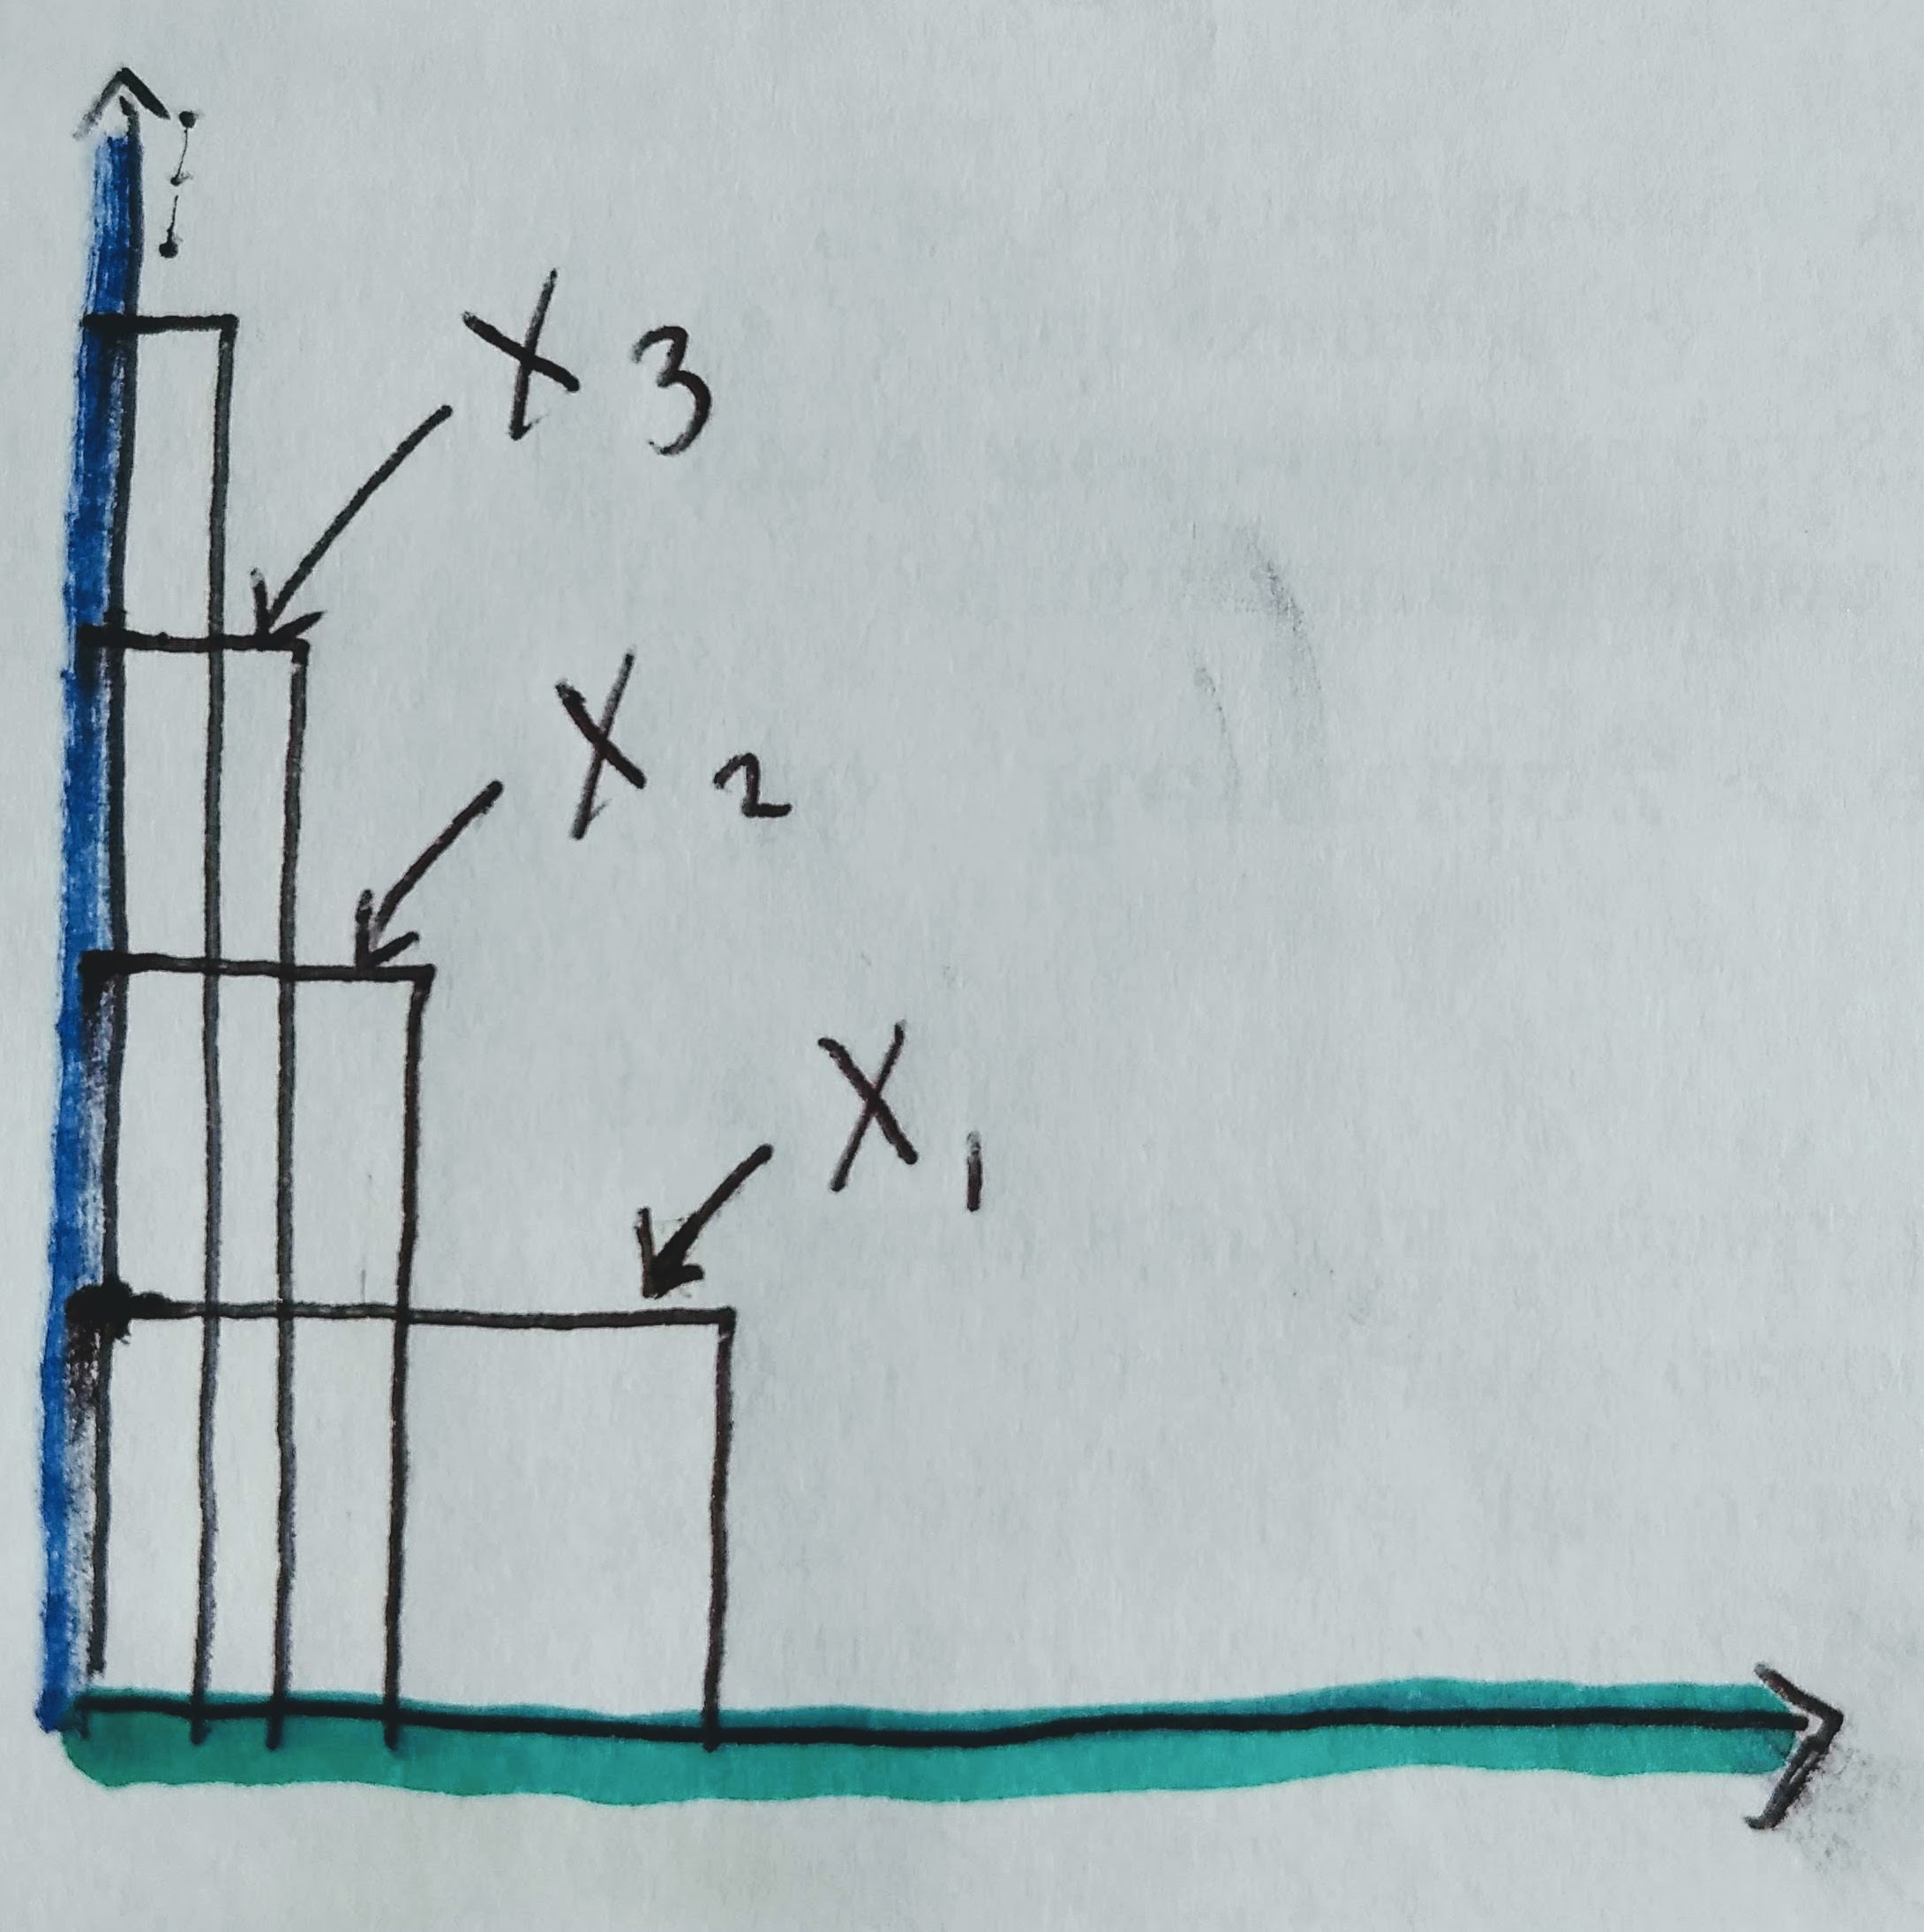 X 3
X 2
X 1